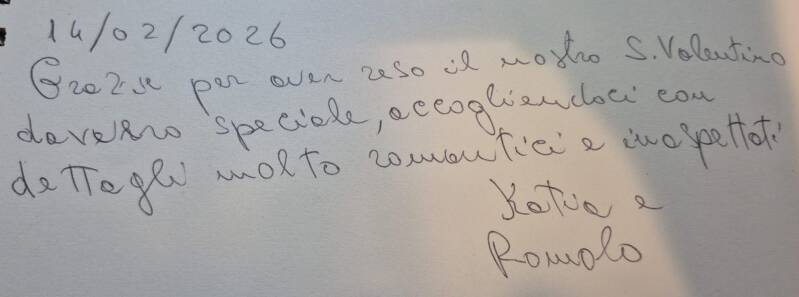 14/02/2026
Grazie per aver reso il nostro S. Valentino
davvero speciale, accogliendoci con
dettagli molto romantici e inaspettati
Katia e
Romolo